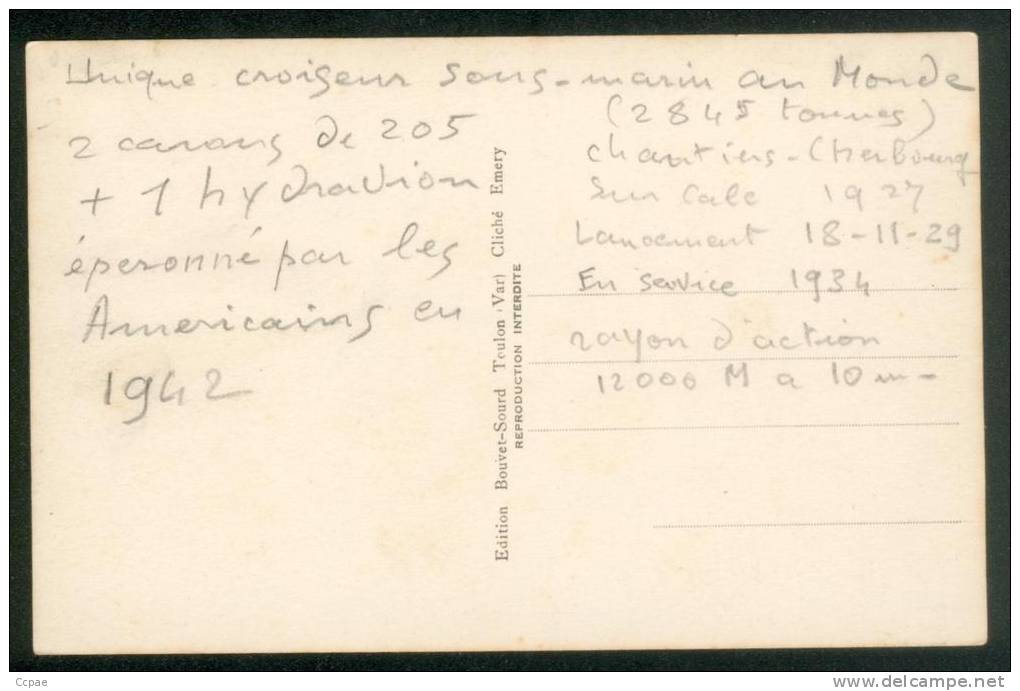 Unique croiseur sous-marin au Monde
(2845 tonnes)
2 canons de 205
+ 1 hydravion
éperonné par les
Americains en
1942
Edition Bouvet-Sourd Toulon (Var) Cliché Emery
REPRODUCTION INTERDITE
chantiers-Cherbourg
Sur Cale 1927
Lancement 18-11-29
En service 1934
rayon d'action
12000 M a 10 m-
Ccpae
www.delcampe.net